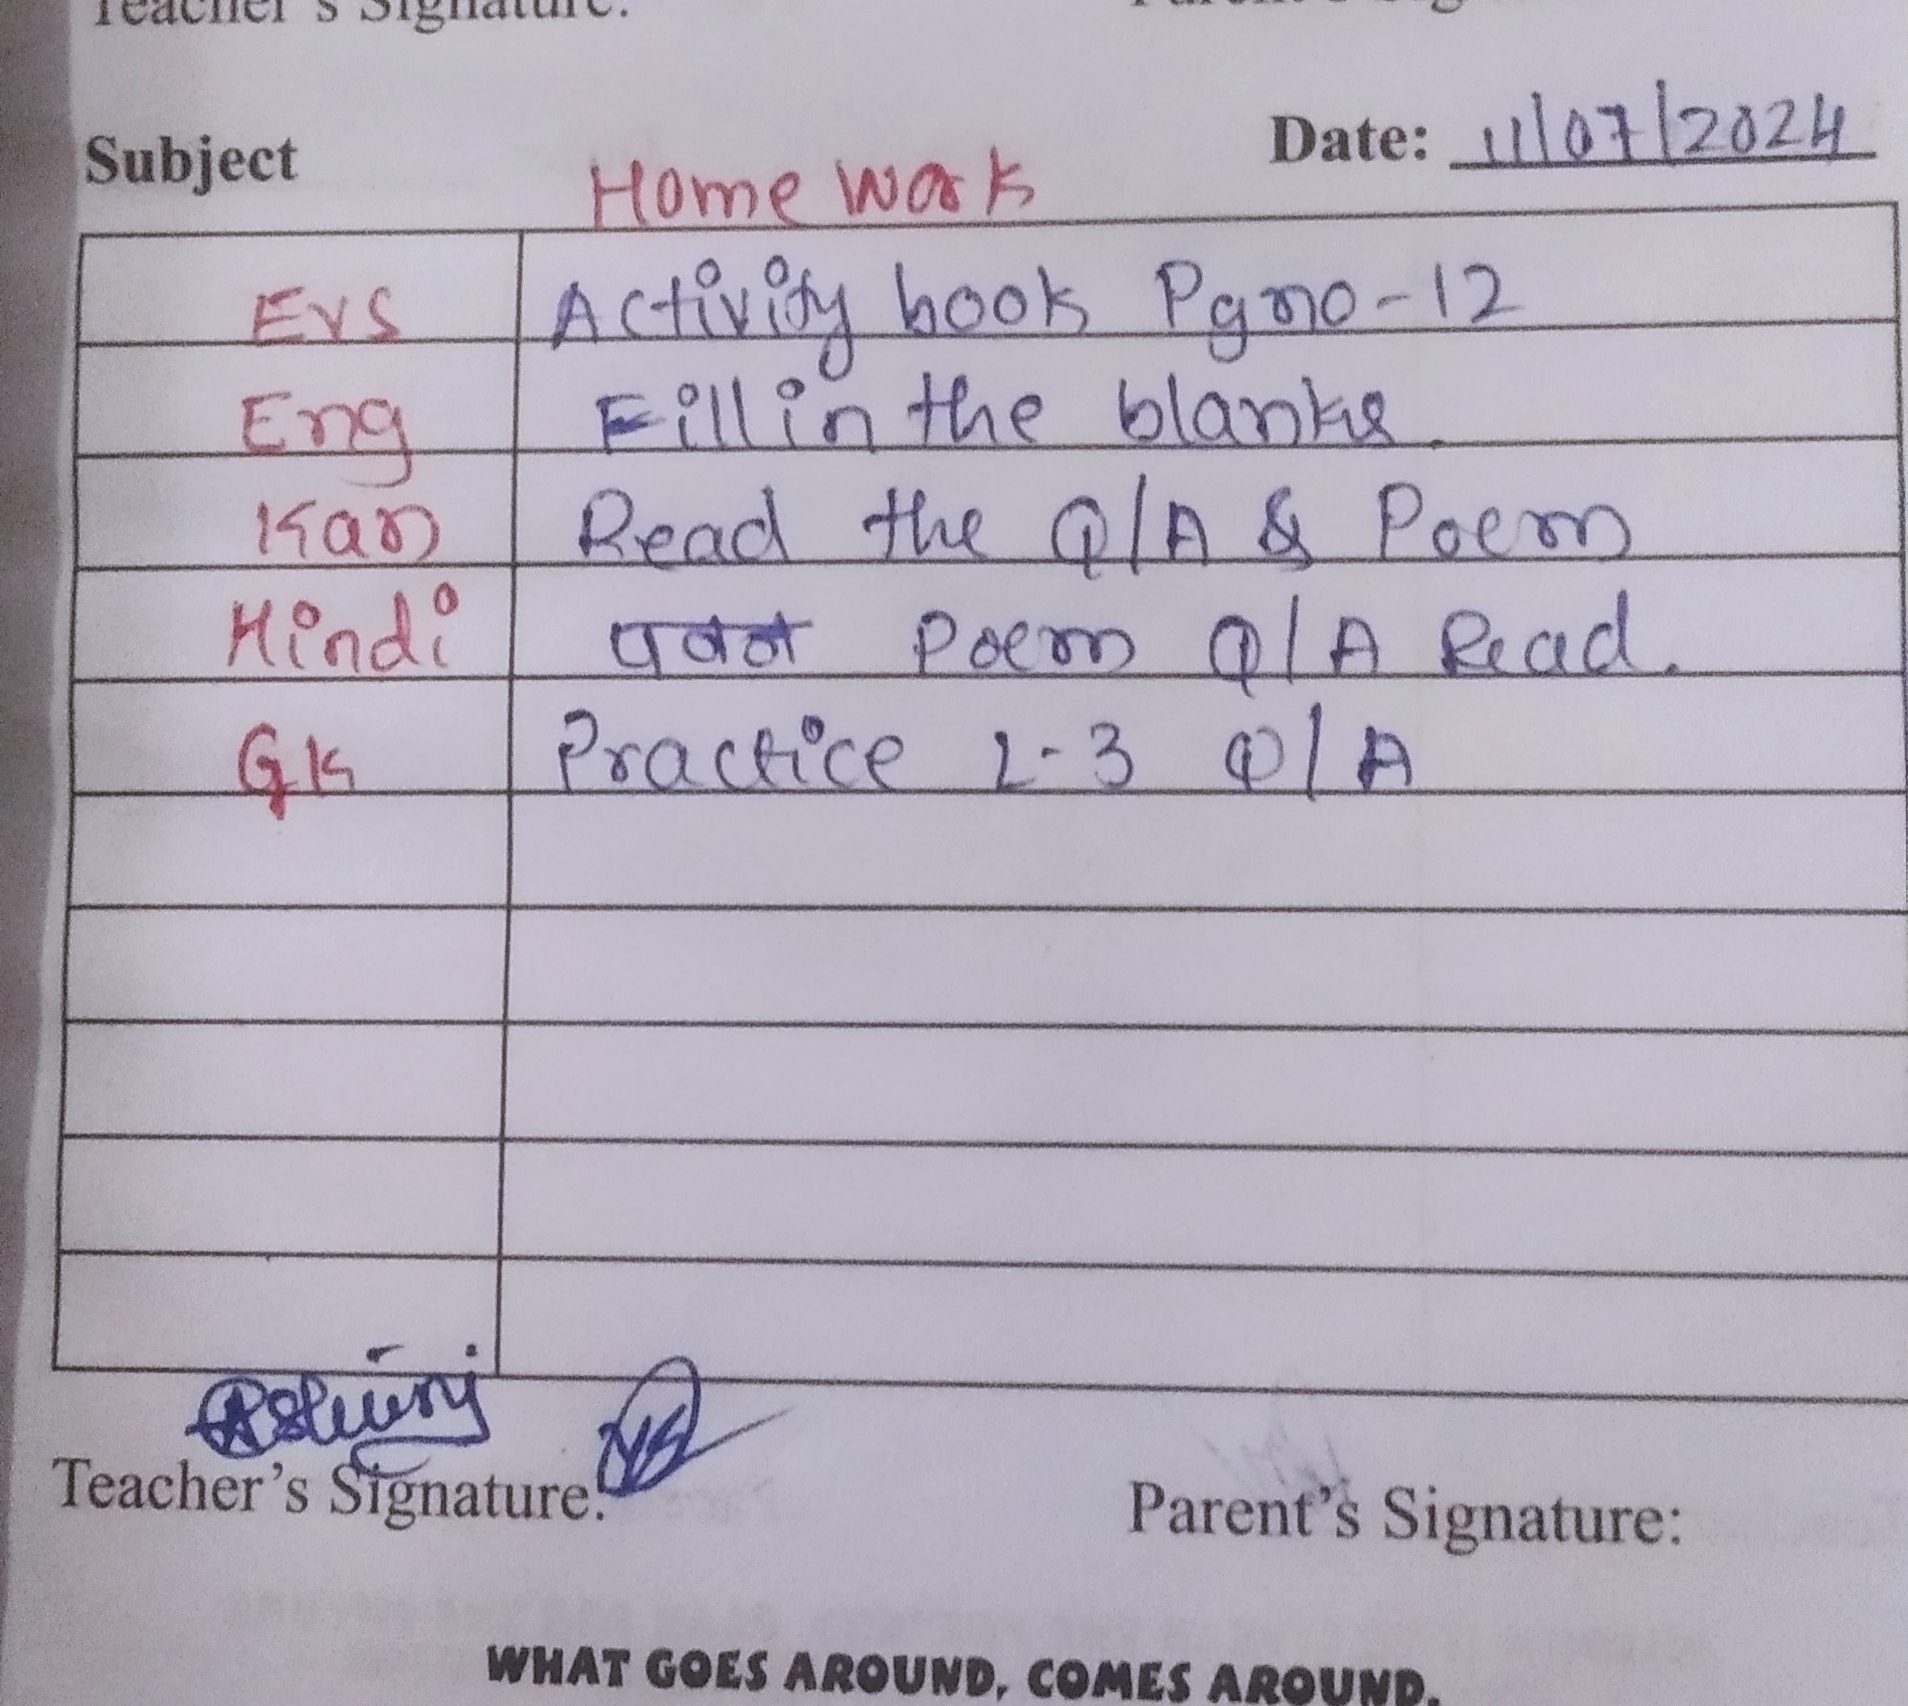 Teacher's Signature:
Subject Home Work Date: 11/07/2024
Evs Activity book Pg no-12
Eng Fill in the blanks.
Kan Read the Q/A & Poem
Hindi पवन Poem Q/A Read.
GK Practice 2-3 Q/A
Teacher's Signature: Parent's Signature:
WHAT GOES AROUND, COMES AROUND.